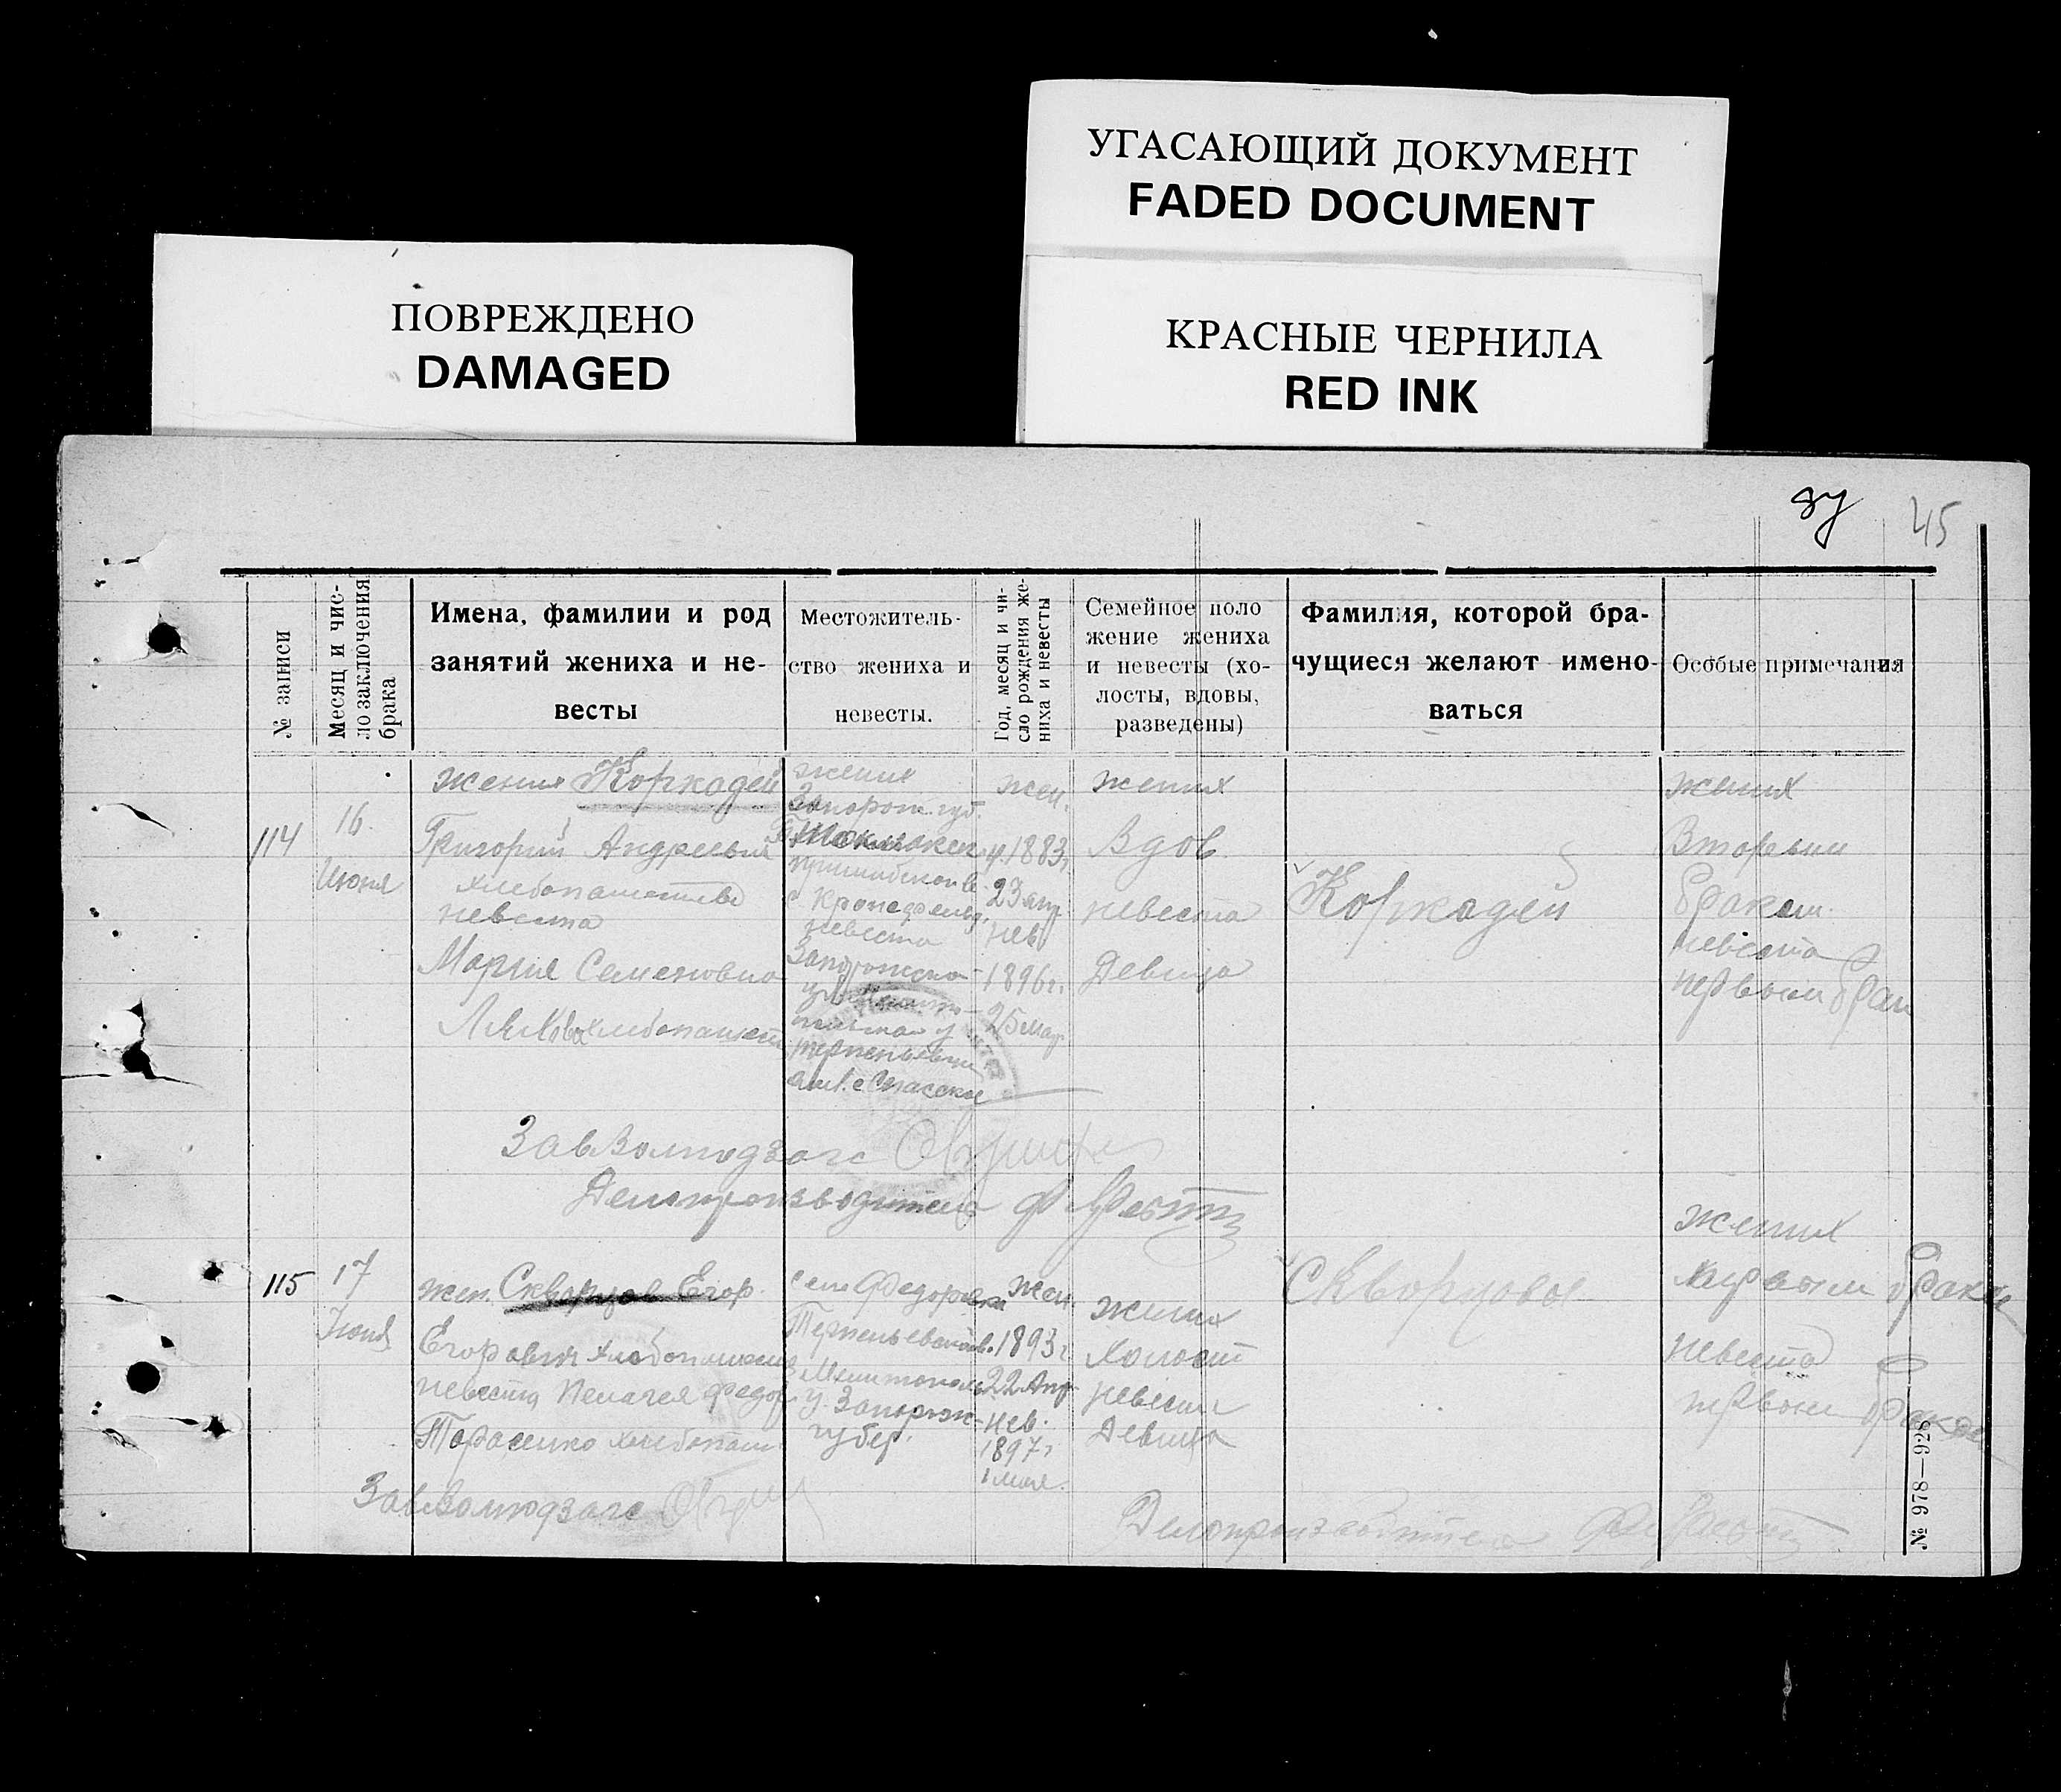 УГАСАЮЩИЙ ДОКУМЕНТ
FADED DOCUMENT
КРАСНЫЕ ЧЕРНИЛА
RED INK
ПОВРЕЖДЕНО
DAMAGED
45
№ записи
Месяц и чис-
ло заключения
брака
Имена, фамилии и род
занятий жениха и не-
весты
Местожитель-
ство жениха и
невесты.
Год, месяц и чи-
сло рождения же-
ниха и невесты
Семейное поло
жение жениха
и невесты (хо-
лосты, вдовы,
разведены)
Фамилия, которой бра-
чущиеся желают имено-
ваться
Особые примечания
114
16
Июня
жених Коркадей
Григорий Андреевич
хлебопашество
невеста
Мария Семеновна
жених
Запорож. губ.
с. Кронсфельд
невеста
Запорожско
у
ст. с Спасское
жен.
1883
23 апр
нев
1896 г.
25 мар
жених
Вдов
невеста
Девица
Коркадей
жених
Вторым
браком
невеста
первым брак
ЗавВолподзагс
Делопроизводитель
115
17
Июня
жен. Скворцов Егор
Егорович хлебопашец
невеста Пелагея Федор
Тарасенко хлебопаш
село Федоровка
Мелитополь
у. Запорож-
губер.
жен.
1893 г
22 Апр
нев.
1897 г
1 мая.
жених
Холост
невеста
Девица
Скворцовы
жених
первым браком
невеста
первым браком
ЗавВолподзагс
Делопроизводитель
№ 978—928